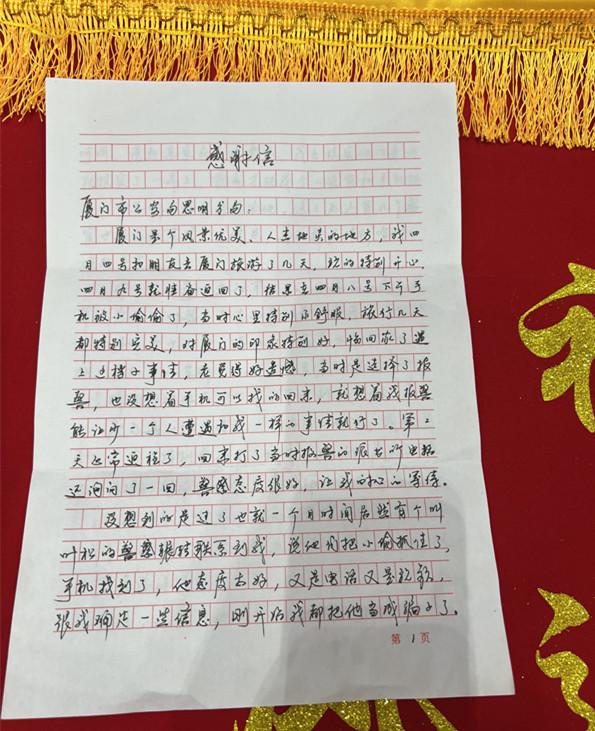 感谢信
厦门市公安局思明分局：
厦门是个风景优美、人杰地灵的地方，我四
月四号和朋友去厦门旅游了几天，玩的特别开心。
四月九号就准备返回了，结果在四月八号下午手
机被小偷偷了，当时心里特别不舒服，旅行几天
都特别完美，对厦门的印象特别好，临回家了遇
上这档子事情，老觉得好遗憾，当时是选择了报
警，也没想着手机可以找的回来，就想着我报警
能让少一个人遭遇和我一样的事情就行了。第二
天正常返程了，回来打了当时报警的派出所电话
还询问了一回，警察态度很好，让我
没想到的是过了也就一个月时间居然有个叫
叶松的警察辗转联系到我，说他们把小偷抓住了，
手机找到了，他态度古好，又是电话又是短彩，
跟我确定一些信息，刚开始我都把他当成骗子了。
第1页